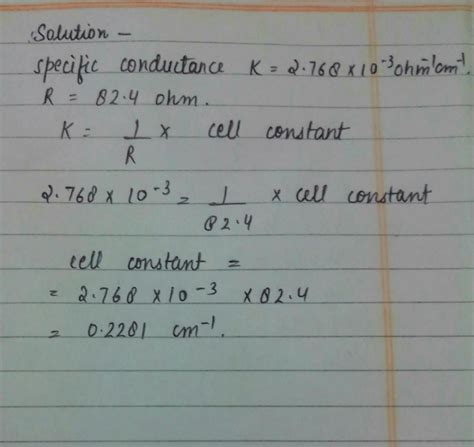 Solution -
specific conductance K = 2.768 × 10⁻³ ohm⁻¹cm⁻¹.
R = 82.4 ohm.
K = 1/R × cell constant
2.768 × 10⁻³ = 1/82.4 × cell constant
cell constant =
= 2.768 × 10⁻³ × 82.4
= 0.2281 cm⁻¹.